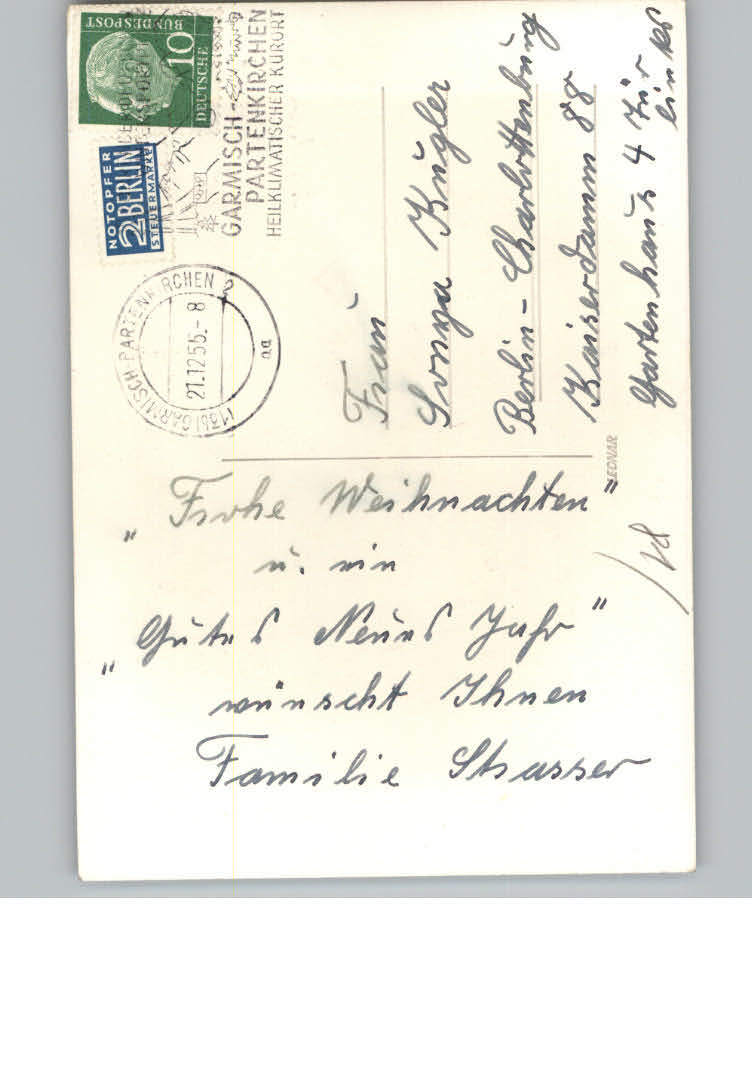 DEUTSCHE
BUNDESPOST
10
NOTOPFER
2 BERLIN
STEUERMARKE
GARMISCH-
PARTENKIRCHEN
HEILKLIMATISCHER KURORT
(13b) GARMISCH-PARTENKIRCHEN 2
21.12.55.-8
aa
Frau
Sonnya Kugler
Berlin-Charlottenburg
Kaiserdamm 88
Gartenhaus 4 Tür
"Frohe Weihnachten"
u. ein
"Gutes Neues Jahr"
wünscht Ihnen
Familie Strasser